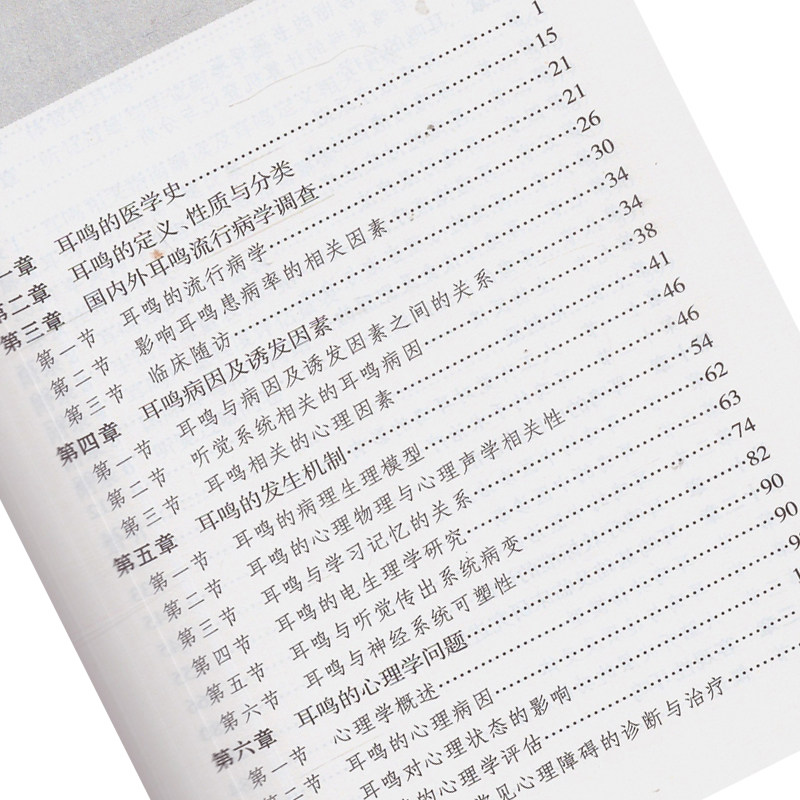 一章 耳鸣的医学史 1
第二章 耳鸣的定义、性质与分类 15
第三章 国内外耳鸣流行病学调查 21
第一节 耳鸣的流行病学 21
第二节 影响耳鸣患病率的相关因素 26
第三节 临床随访 30
第四章 耳鸣病因及诱发因素 34
第一节 耳鸣与病因及诱发因素之间的关系 34
第二节 听觉系统相关的耳鸣病因 38
第三节 耳鸣相关的心理因素 41
第五章 耳鸣的发生机制 46
第一节 耳鸣的病理生理模型 46
第二节 耳鸣的心理物理与心理声学相关性 54
第三节 耳鸣与学习记忆的关系 62
第四节 耳鸣的电生理学研究 63
第五节 耳鸣与听觉传出系统病变 74
第六节 耳鸣与神经系统可塑性 82
第六章 耳鸣的心理学问题 90
第一节 心理学概述 90
二节 耳鸣的心理病因
耳鸣对心理状态的影响
的心理学评估
常见心理障碍的诊断与治疗